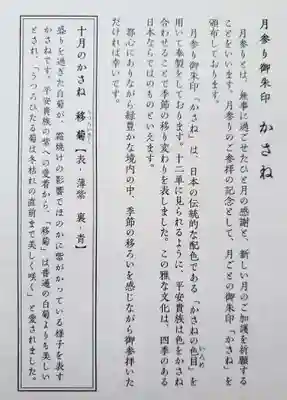 月参り御朱印 かさね
月参りとは、無事に過ごせたひと月の感謝と、新しい月のご加護を祈願する
ことをいいます。月参りのご参拝の記念として、月ごとの御朱印「かさね」を
頒布しております。
月参り御朱印「かさね」は、日本の伝統的な配色である「かさねの色目」を
いろめ
用いて奉製をしております。十二単に見られるように、平安貴族は色をかさね
合わせることで季節の移り変わりを表しました。この雅な文化は、四季のある
日本ならではのものといえます。
都心にありながら緑豊かな境内の中、季節の移ろいを感じながら御参拝いた
だければ幸いです。
十月のかさね 移菊【表・薄紫 裏・青】
うつろいぎく
盛りを過ぎた白菊が、霜焼けの影響でほのかに紫がかっている様子を表す
かさねです。平安貴族の紫への愛着から、「移菊」は普通の白菊よりも美しい
とされ、「うつろひたる菊は冬枯れの直前まで美しく咲く」と愛されました。